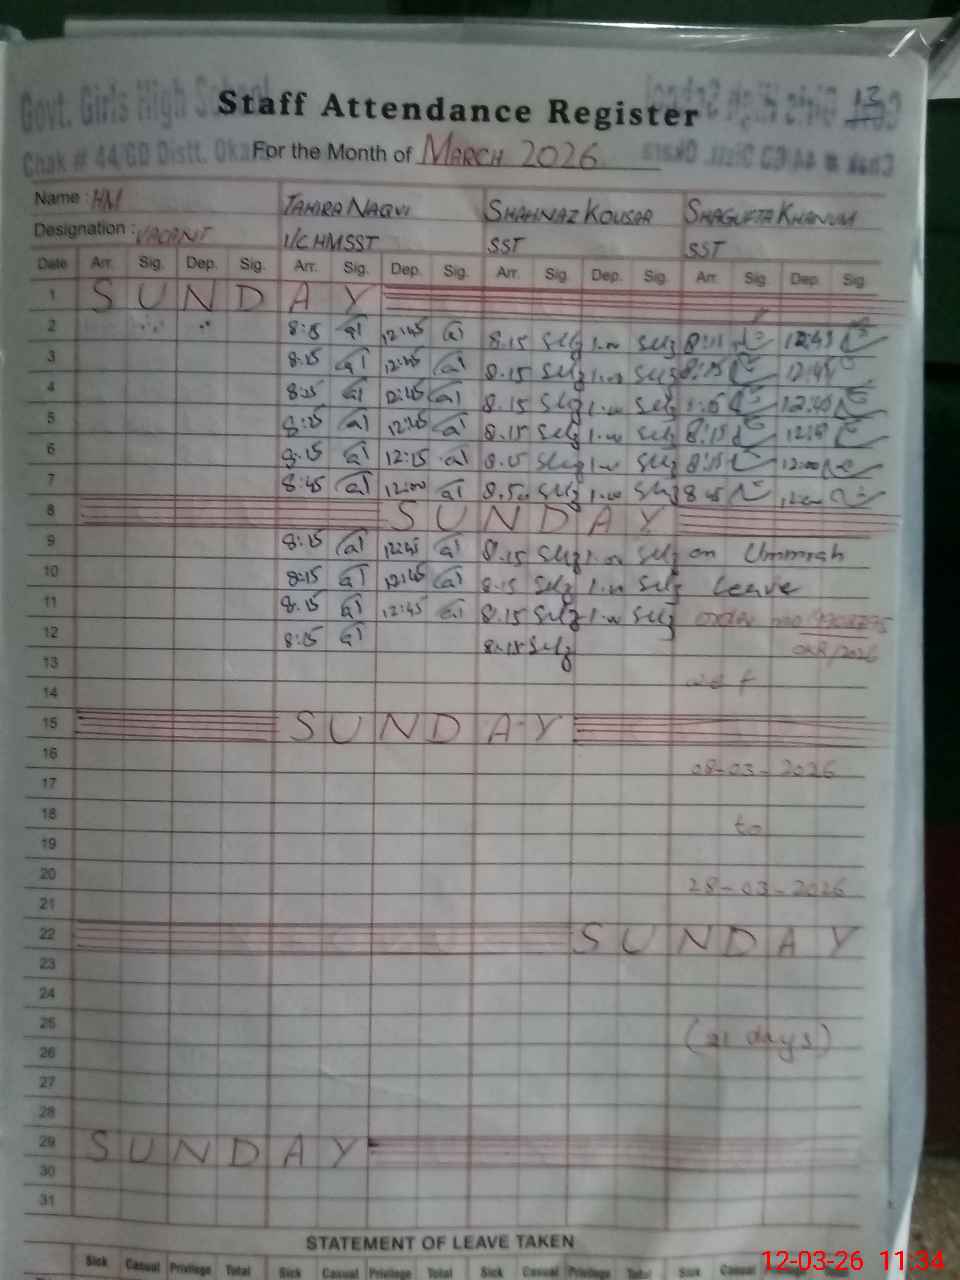 Govt. Girls High School
Staff Attendance Register
13
Chak # 44/GD Distt. Oka
For the Month of MARCH 2026
Name : HM TAHIRA NAQVI SHAHNAZ KOUSAR SHAGUFTA KHANUM
Designation : VACANT I/C HM SST SST SST
Date Arr. Sig. Dep. Sig. Arr. Sig. Dep. Sig. Arr. Sig. Dep. Sig. Arr. Sig Dep. Sig.
1 SUNDAY
2 8:15 12:45 8.15 1.00 8:15 12:45
3 8:15 12:45 8.15 1.00 8:15 12:45
4 8:15 12:45 8.15 1.00 12:45
5 8:15 12:45 8.15 1.00 8:15
6 8:15 12:15 8.15 1.00 8:15 12:00
7 8:45 12:00 8.50 1.00 8:45
8 SUNDAY
9 8:15 12:45 8.15 1.00 on Ummrah
10 8:15 12:45 8.15 1.00 Leave
11 8:15 12:45 8.15 1.00 order no
12 8:15 8.15 OKR/2026
13
14 w.e.f
15 SUNDAY
16 08-03-2026
17
18 to
19
20 28-03-2026
21
22 SUNDAY
23
24
25 (21 days)
26
27
28
29 SUNDAY
30
31
STATEMENT OF LEAVE TAKEN
Sick Casual Privilege Total Sick Casual Privilege Total Sick Casual Privilege Total Sick Casual Privilege Total
12-03-26 11:34